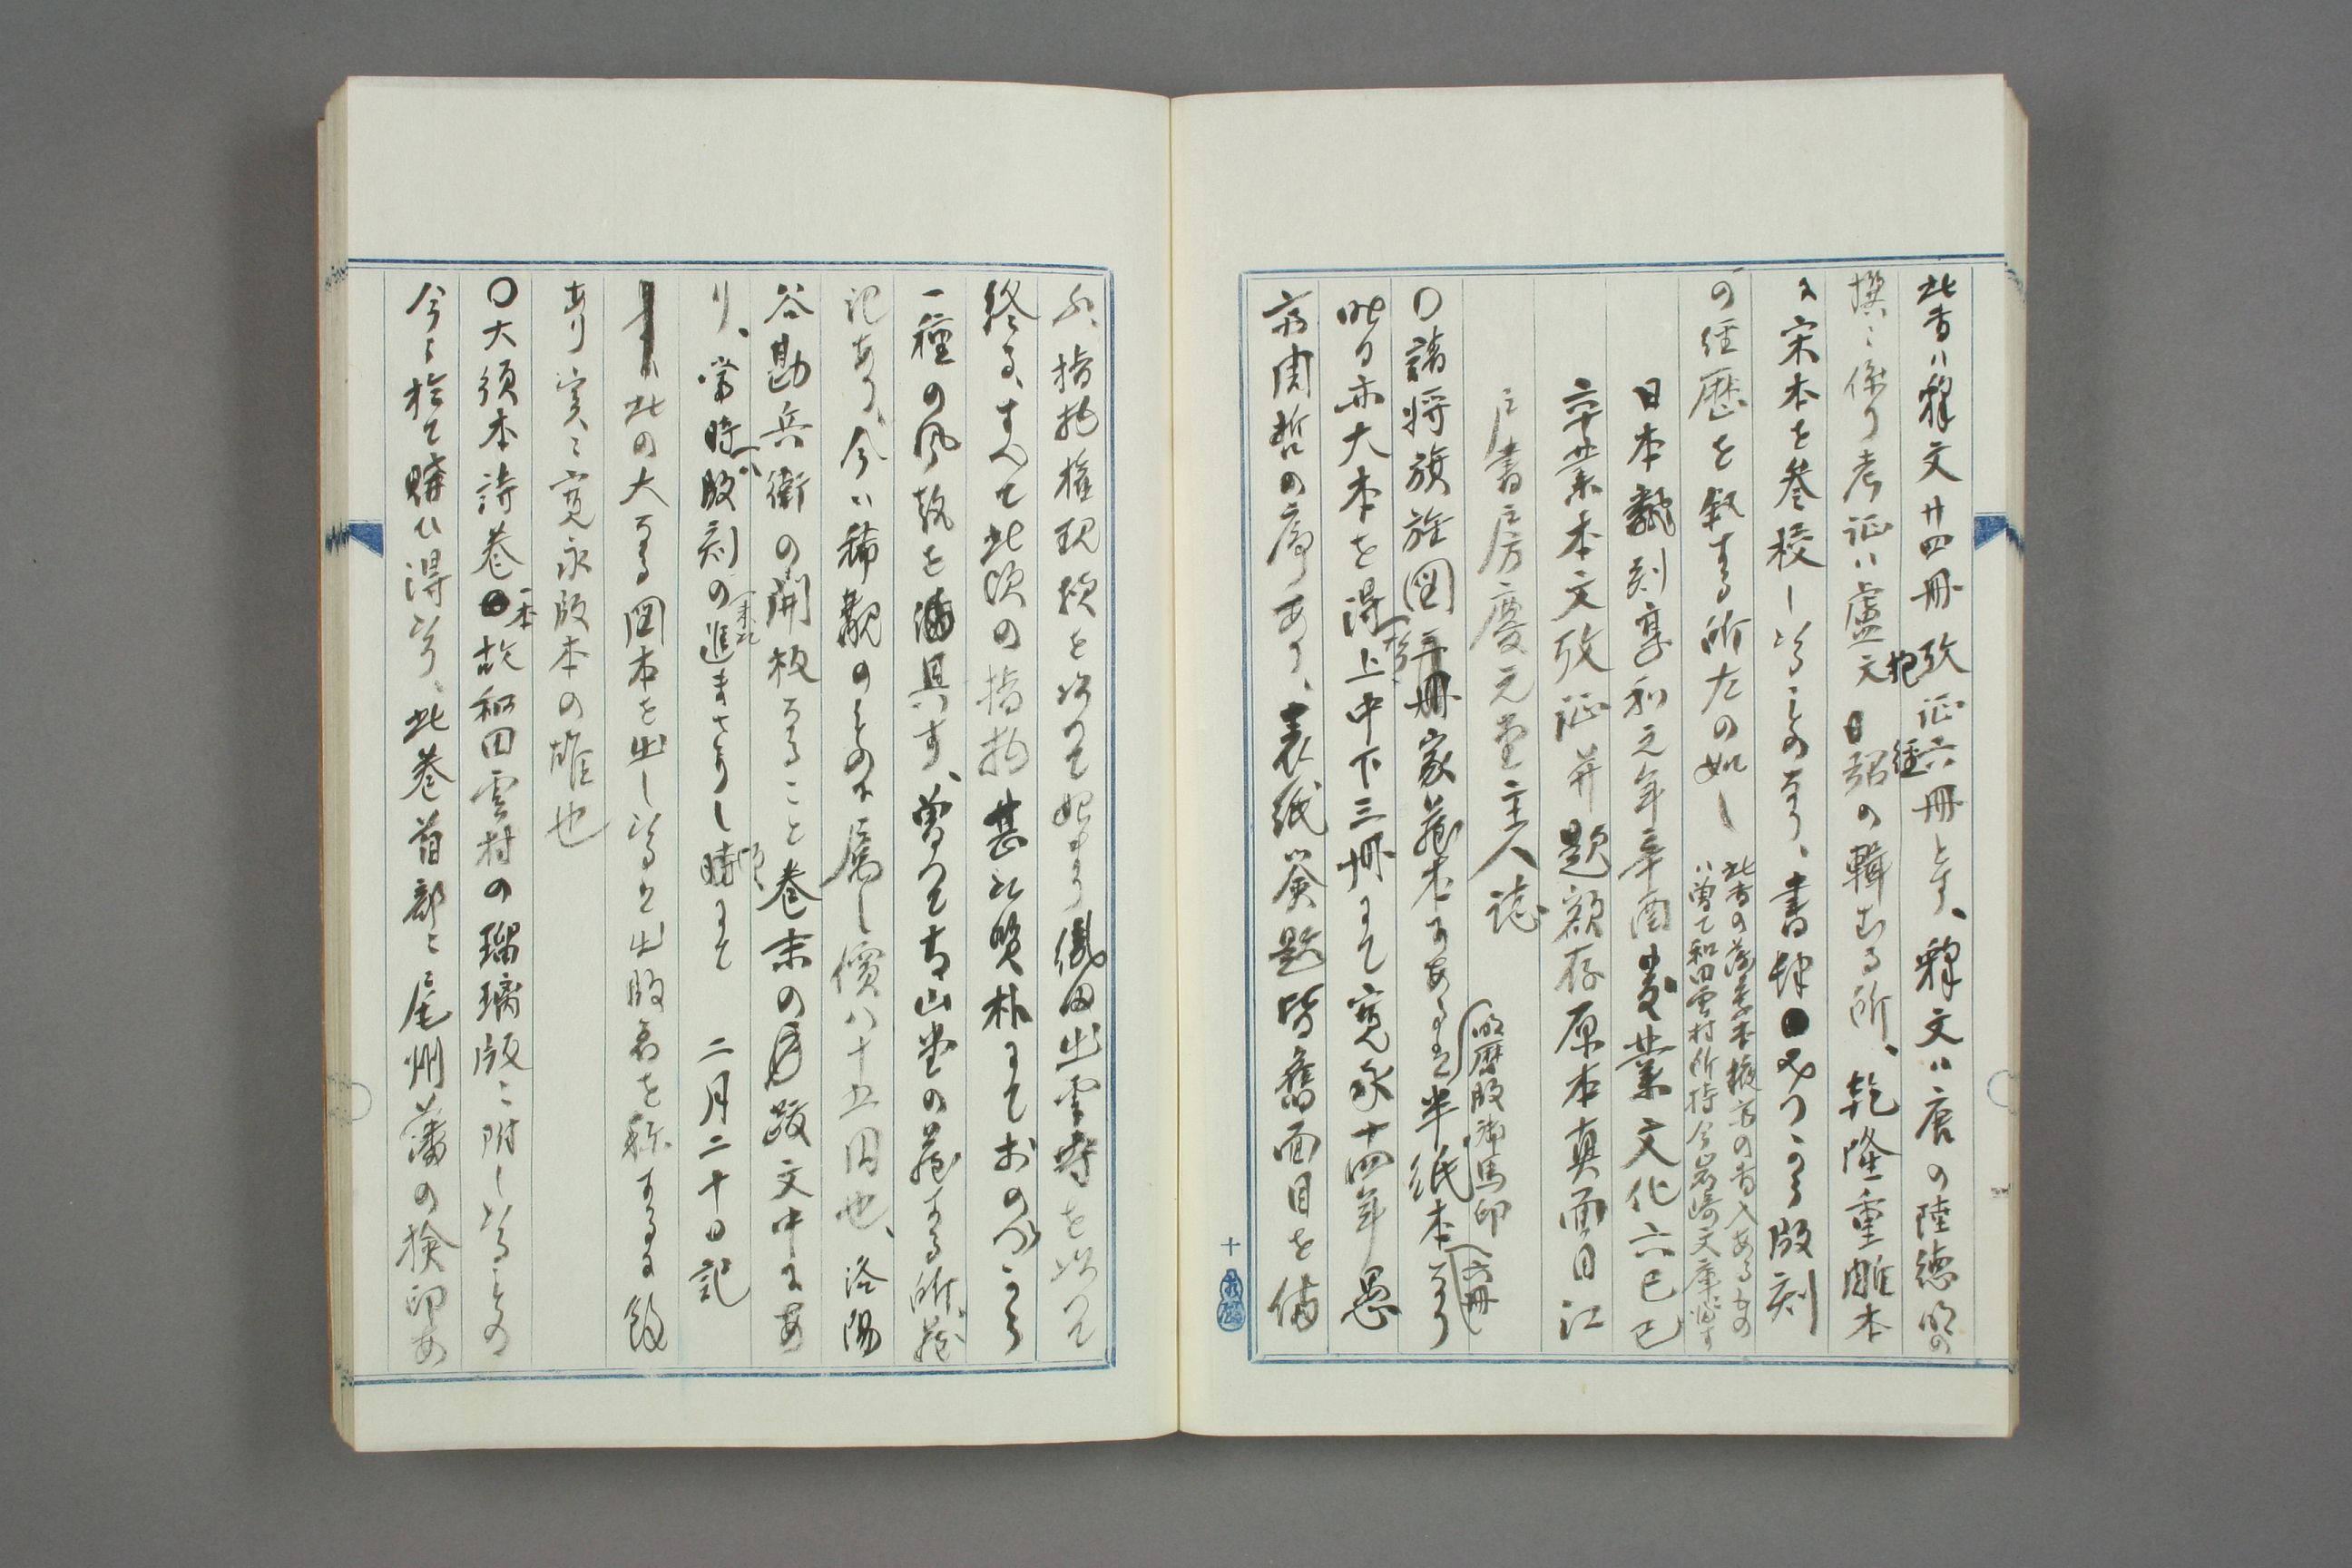 此書ハ釈文廿四冊攷証六冊とす、釈文ハ唐の陸徳明の
撰ニ係り考証ハ盧文弨の輯むる所、乾隆重雕本
抱経
に宋本を参校しいるものなり、書肆より版刻
の経歴を叙する所左の如し
此書の落葉本掖斎の書入あるもの
ハ曽て和田雲村所持今岩崎文庫ニ蔵す
日本翻刻享和元年辛酉発業文化六己巳
卒業本文攷証并題額存原本真面目江
戸書房慶元堂主人誌
明暦版御馬印 六冊
〇諸将旗旌図三冊家蔵本にあるは半紙本なり
昨日亦大本を得上中下三冊にて寛永十四年愚
斎周哲の序あり、表紙簽題皆旧面目を備
十
ふ、指物権現様を以て始まり織田出雲守を以て
終る、すべて此頃の指物甚た質朴にておのづから
一種の風致を具す、曽て青山堂の蔵する所、蔵
記あり、今ハ稀覯のものに属し價八十五円也、洛陽
谷勘兵衛の開板なること巻末の跋文中にあ
り、常時版刻の進まさりし時にて 二月二十日記
此の大なる図本を出しいると出版者を称するに餘
あり実ニ寛永版本の雄也
〇大須本詩巻一本故和田雲村の瑠璃版ニ附しいるもの
今に於て購ひ得たり、此巻首部ニ尾州藩の検印あ